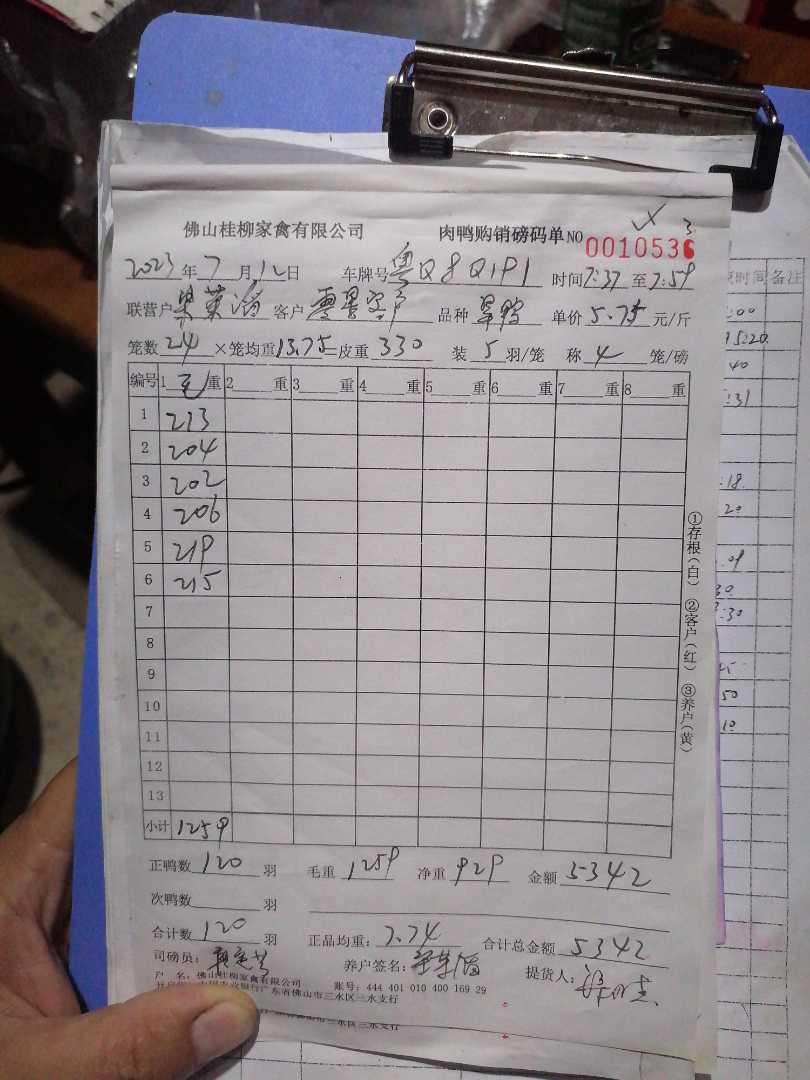 佛山桂柳家禽有限公司 肉鸭购销磅码单 NO 0010536 3
2023年7月12日 车牌号 粤Q8Q1P1 时间 7:37 至 7:59
联营户 客户 品种 单价 5.75 元/斤
笼数 24 ×笼均重 13.75 皮重 330 装 5 羽/笼 称 4 笼/磅
编号 1 毛 重 2 重 3 重 4 重 5 重 6 重 7 重 8 重
1 213
2 204
3 202
4 206
5 219
6 215
7
8
9
10
11
12
13
小计 1259
①存根(白) ②客户(红) ③养户(黄)
正鸭数 120 羽 毛重 1259 净重 929 金额 5342
次鸭数 羽
合计数 120 羽 正品均重: 7.74 合计总金额 5342
司磅员: 养户签名: 提货人:
户 名: 佛山桂柳家禽有限公司 账号: 444 401 010 400 169 29
农业银行广东省佛山市三水区三水支行
市三水区三水支行
时间 备注
:00
15:20
40
:31
:18
20
:01
30
3:30
45
50
10